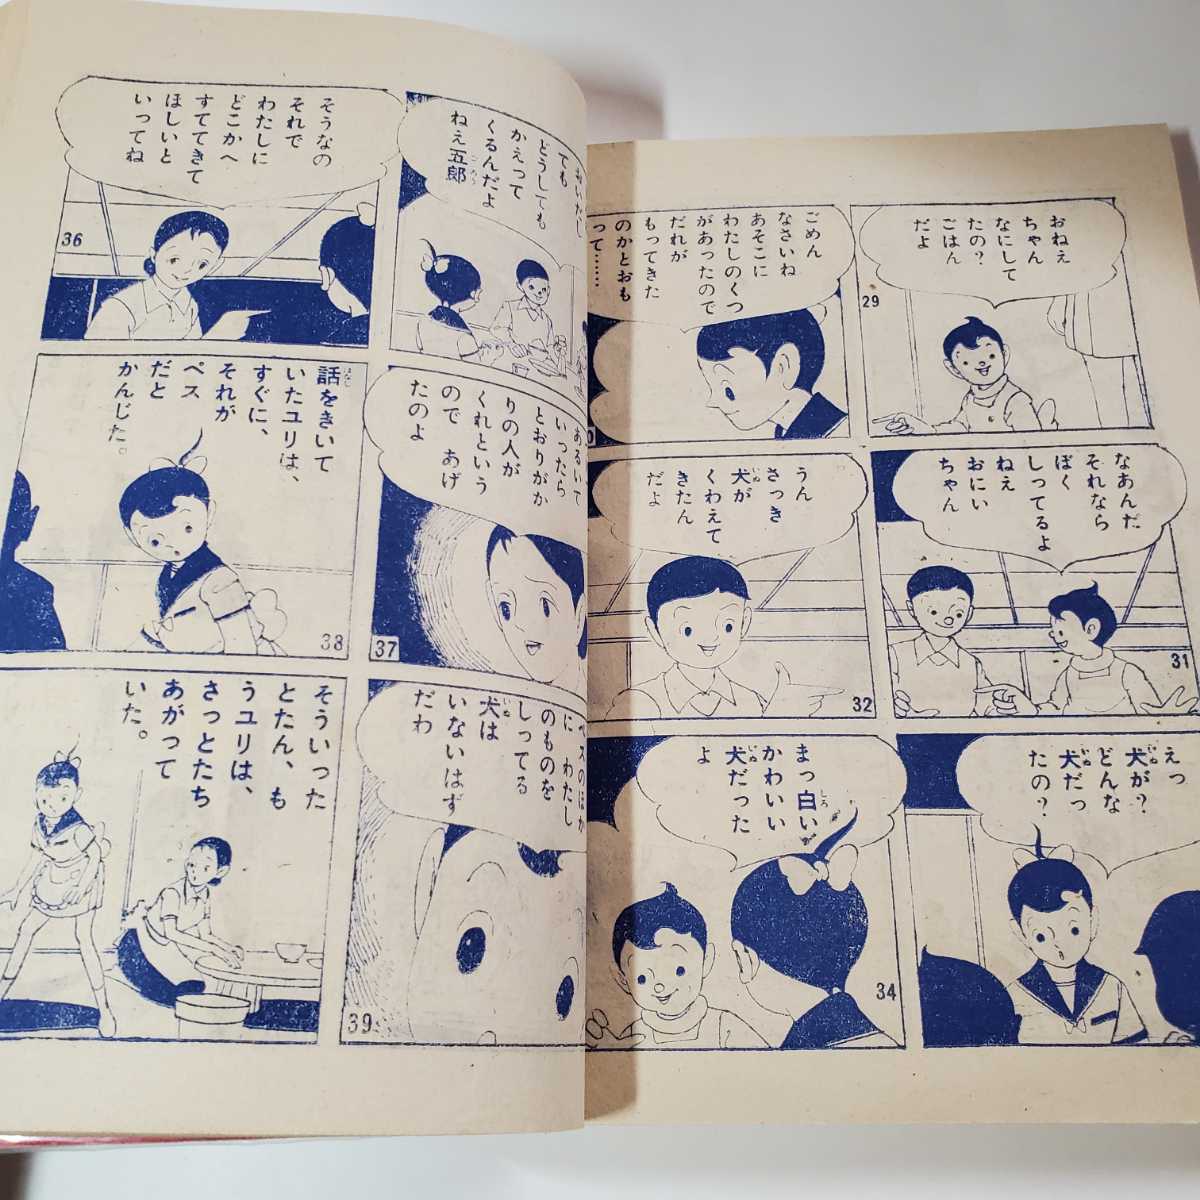 おねえ
ちゃん
なにして
たの?
ごはん
だよ
29
ごめん
なさいね
あそこに
わたしのくつ
があったので
だれが
もってきた
のかとおも
って……
なあんだ
それなら
ぼく
しってるよ
ねえ
おにい
ちゃん
31
うん
さっき
犬が
くわえて
きたん
だよ
32
えっ
犬が?
どんな
犬だっ
たの?
まっ白い
かわいい
犬だった
よ
34
おいだし
ても
どうしても
かえって
くるんだよ
ねえ五郎
そうなの
それで
わたしに
どこかへ
すててきて
ほしいと
いってね
36
あるいて
いったら
とおりがか
りの人が
くれという
ので あげ
たのよ
37
話をきいて
いたユリは、
すぐに、
それが
ペス
だと
かんじた。
38
ペスのほか
に わたし
のものを
しってる
犬は
いないはず
だわ
39
そういった
とたん、も
うユリは、
さっとたち
あがって
いた。